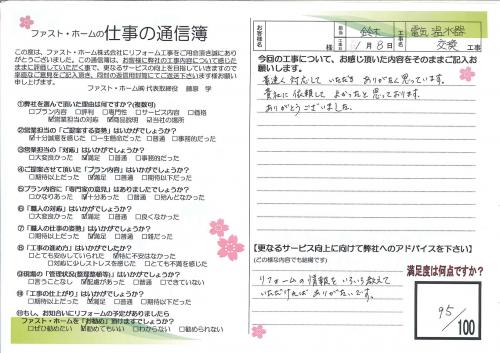 ファスト・ホームの仕事の通信簿
この度は、ファスト・ホーム株式会社にリフォーム工事をご用命頂き誠にあり
がとうございました。この通信簿は、お客様に弊社の工事内容について感じた
ままに評価していただく事で、更なるサービス向上を目指していきますので
率直なご意見をご記入頂き、同封の返信用封筒にてご返送下さいます様お願い
申し上げます。
ファスト・ホーム㈱ 代表取締役 藤原 学
①弊社を選んで頂いた理由は何ですか？(複数可)
□プラン内容 □評判 □専門性 □サービス内容 □価格
☑営業担当の対応 ☑商品説明 □当社の場所
②営業担当の「ご提案する姿勢」はいかがでしょうか？
☑十分誠意を感じた □一生懸命だった □普通 □事務的だった
③営業担当の「対応」はいかがでしょうか？
□大変良かった ☑満足 □普通 □事務的だった
④ご提案させて頂いた「プラン内容」はいかがでしょうか？
□期待以上だった ☑満足 □普通 □期待以下だった
⑤プラン内容に「専門家の意見」はありましたでしょうか？
□かなりあった ☑あった □普通 □殆んどなかった
⑥「職人の対応」はいかがでしょうか？
□大変良かった ☑満足 □普通 □良くなかった
⑦「職人の仕事の姿勢」はいかがでしょうか？
□期待以上だった ☑満足 □普通 □雑だった
⑧「工事の進め方」はいかがでしょうか？
□とても安心していられた ☑特に不安はなかった
□対処に少しストレスを感じた □とても不満を感じた
⑨現場の「管理状況(整理整頓等)」はいかがでしょうか？
□言うことなし ☑配慮があった □普通 □できていない
⑩「工事の仕上がり」はいかがでしょうか？
□期待以上だった ☑満足 □普通 □期待以下だった
⑪もし、お知合いにリフォームの予定がありましたら
ファスト・ホームを「お勧め」頂けますでしょうか？
□ぜひ勧めたい ☑勧めてもいい □わからない □勧められない
お客様名
様
担当 鈴木
工期 1月8日
電気温水器
交換 工事
今回の工事について、お感じ頂いた内容をそのままご記入お
願いします。
普通人対応していただき ありがたく思っています。
貴社に依頼して よかったと思っております。
ありがとうございました。
【更なるサービス向上に向けて弊社へのアドバイスを下さい】
(どの様な内容でも結構です)
リフォームの情報をいろいろ教えて
いただければ ありがたいです。
満足度は何点ですか？
95/100